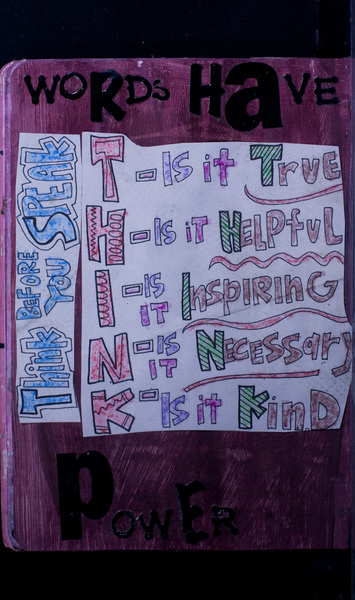 WORDS HAVE
THINK BEFORE YOU SPEAK
T - IS it TRUE
H - IS iT HELPfUL
I - IS iT INSPIRING
N - iS IT NECESSARY
K - IS it KinD
POWER